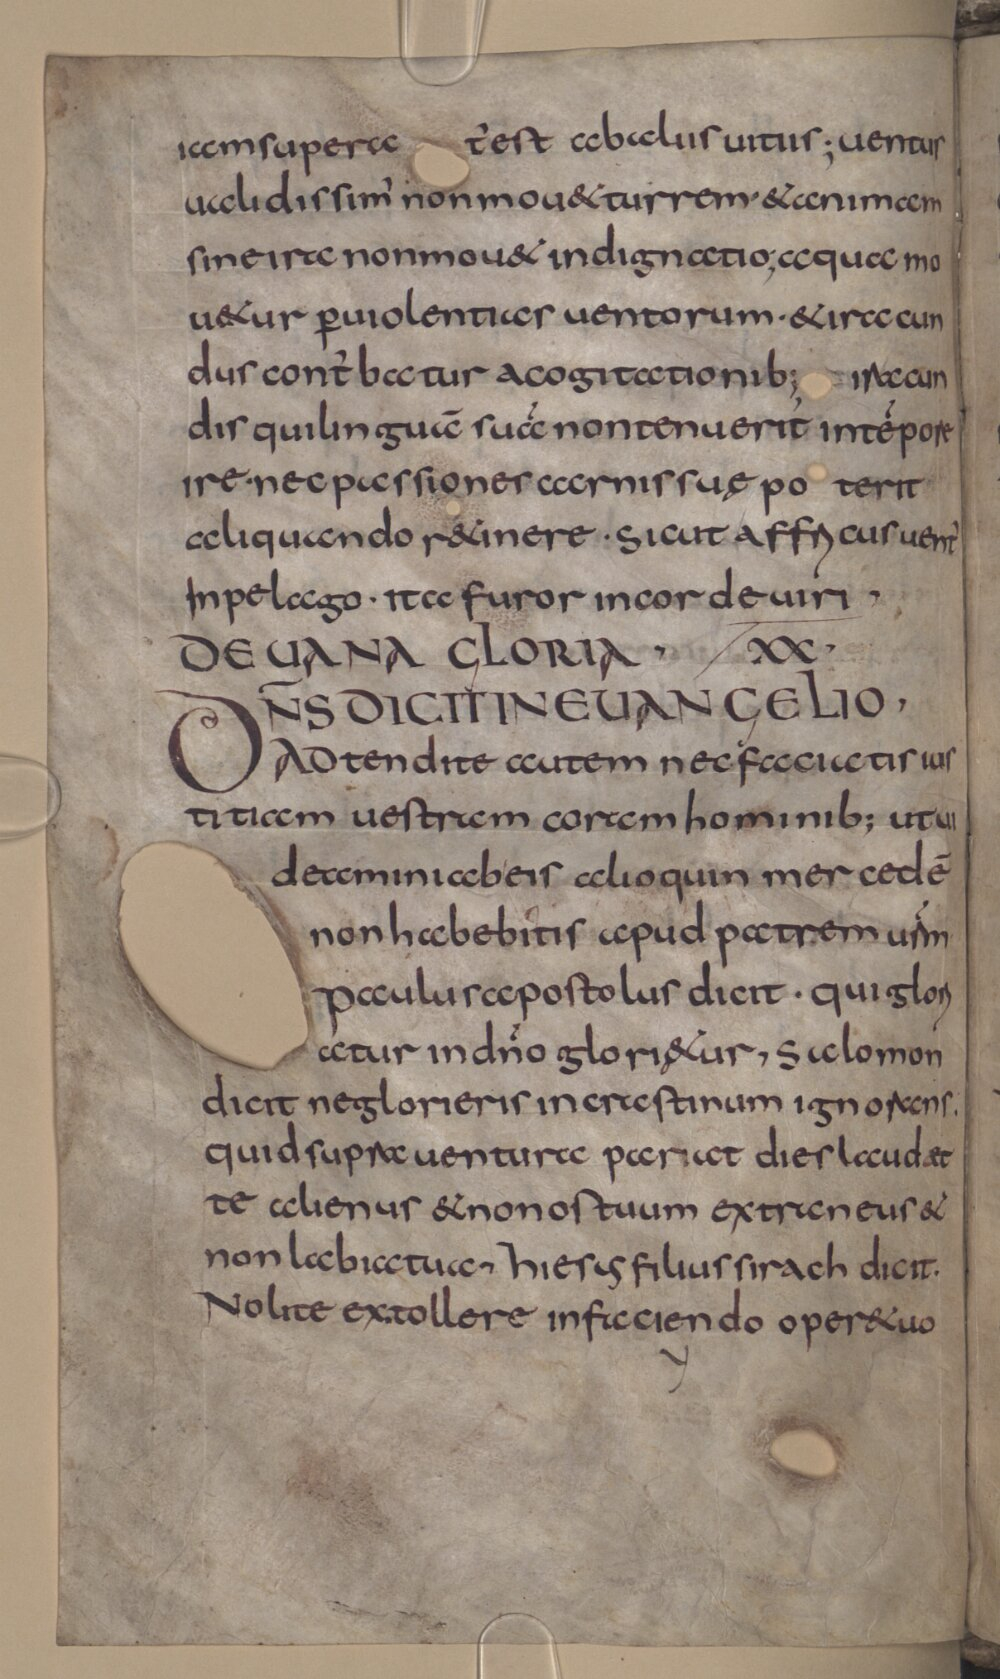 iam supera t' est ab alus uitus; uentus
ualidissim' non mou& turrem · & animam
sine ira non mou& indignatio; aqua mo
u&ur ꝑ uiolentias uentorum · & iracun
dus cont' batur a cogitationib; iracun
dis qui linguā suā non tenuerit in tēpore
ire · nec passiones carnis suę po terit
aliquando r&inere · sicut affricus uent'
In pelago · ita furor in corde uiri ,
DE UANA GLORIA · XX ·
DN̄S DICIT IN EUANGELIO ,
ADtendite autem nec faciatis ius
titiam uestram coram hominib; ut ui
deamini ab eis alioquin mercedē
non habebitis apud patrem ur̄m
Paulus apostolus dicit · qui glori
atur in dn̄o glori&ur, Salomon
dicit ne glorieris in crastinum ignorans.
quid supra uentura pariat dies laud&
te alienus & non os tuum extraneus &
non labia tua, hiesus filius sirach dicit.
Nolite extollere in faciendo oper& uo